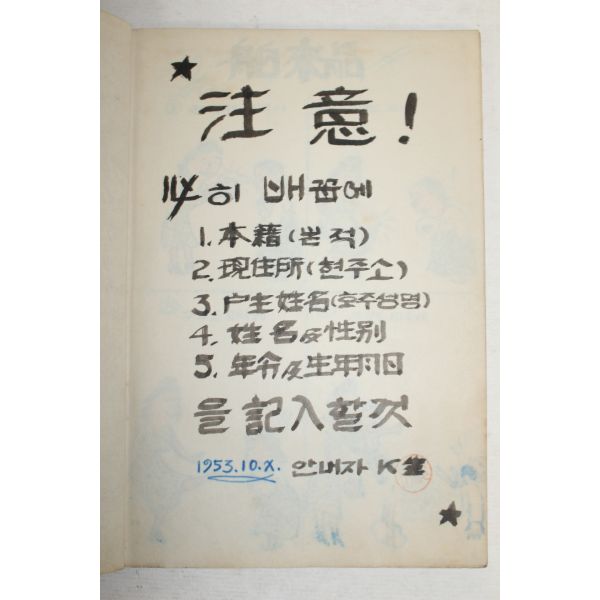 注意!
必히 배꼽에
1. 本籍(본적)
2. 現住所(현주소)
3. 户主姓名(호주성명)
4. 姓名及性別
5. 年令及生年月日
을 記入할것
1953.10.X. 안내자 K生